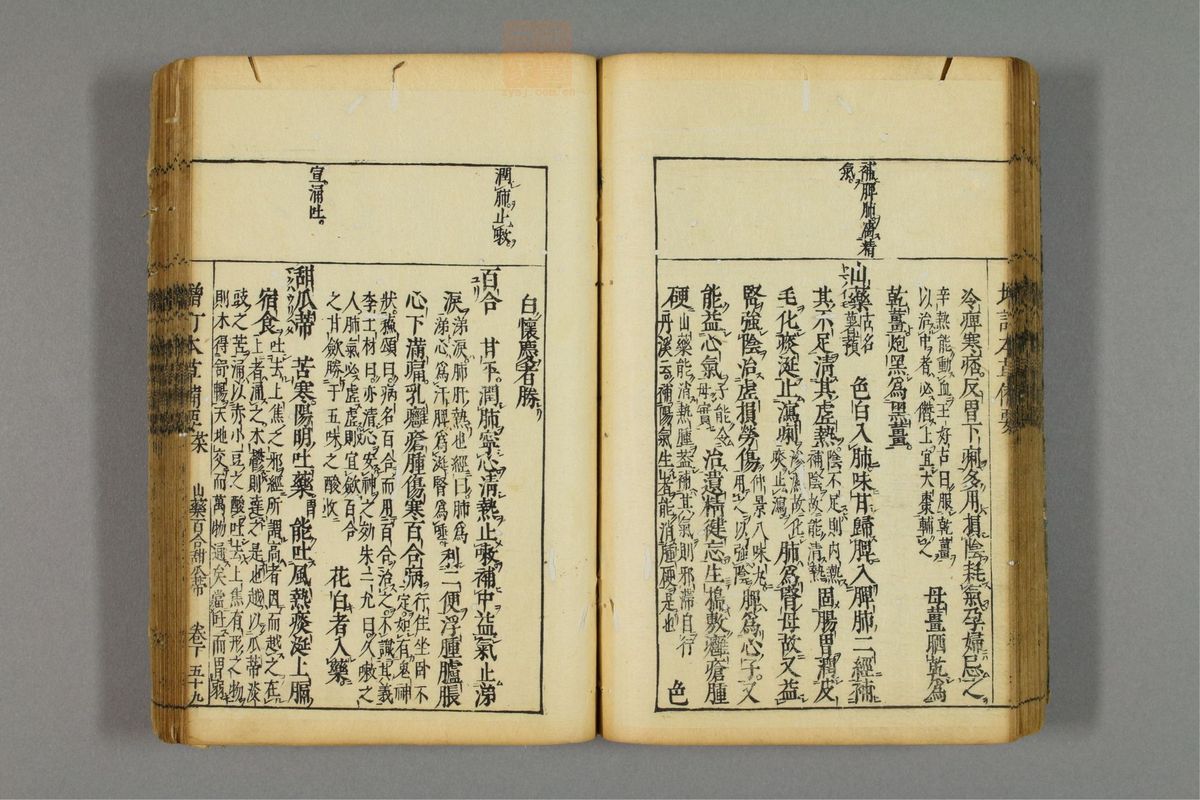 補脾肺濇精
氣。
冷痺寒痞。反胃下痢。多用損陰耗氣。孕婦忌之
辛熱能動血。王好古曰。服乾薑
以治中者。必僭上。宜大棗輔之。
母薑晒乾為
乾薑。炮黑為黑薑。
山藥
古名
薯蕷
色白入肺。味甘歸脾。入脾肺二經。補
其不足。清其虛熱。
陰不足則內熱
補陰故能清熱
固腸胃。潤皮
毛。化痰涎。止瀉痢。
滲濕故化
痰止瀉
肺為腎母。故又益
腎強陰。治虛損勞傷。
仲景八味丸。
用之以強陰
脾為心子。又
能益心氣。
子能令
母實
治遺精健忘。生搗敷癰瘡。腫
硬。
山藥能消熱腫。蓋補其氣則邪滯自行
丹溪云。補陽氣生者。能消腫硬是也
色
白懷慶者勝
潤肺止嗽
宣涌吐。
百合
甘平。潤肺寧心。清熱止嗽。補中益氣。止涕
淚。
涕淚肺肝熱也。經曰。肺為
涕。心為汗。脾為涎。腎為唾。
利二便。浮腫臚脹
心下滿。肩乳癰。瘡腫。傷寒百合病
行住坐臥不
定。如有鬼神
狀。蘇頌曰。病名百合。而用百合治之。不識其義
李士材曰。亦清心安神之効。朱二允曰。久嗽之
人。肺氣必虛。虛則宜歛。百合
之甘歛。勝于五味之酸收
花白者入藥
甜瓜蒂
苦寒陽明
胃
吐藥。能吐風熱痰涎。上膈
宿食。
吐去上焦之邪。經所謂高者因而越之。在
上者涌之。木鬱則達之是也。越以瓜蒂淡
豉之苦。涌以赤小豆之酸。吐去上焦有形之物
則木得舒暢。天地交而萬物通矣。當吐而胃弱
增訂本草備要
菜
山藥百合甜瓜蒂
卷下
五十九